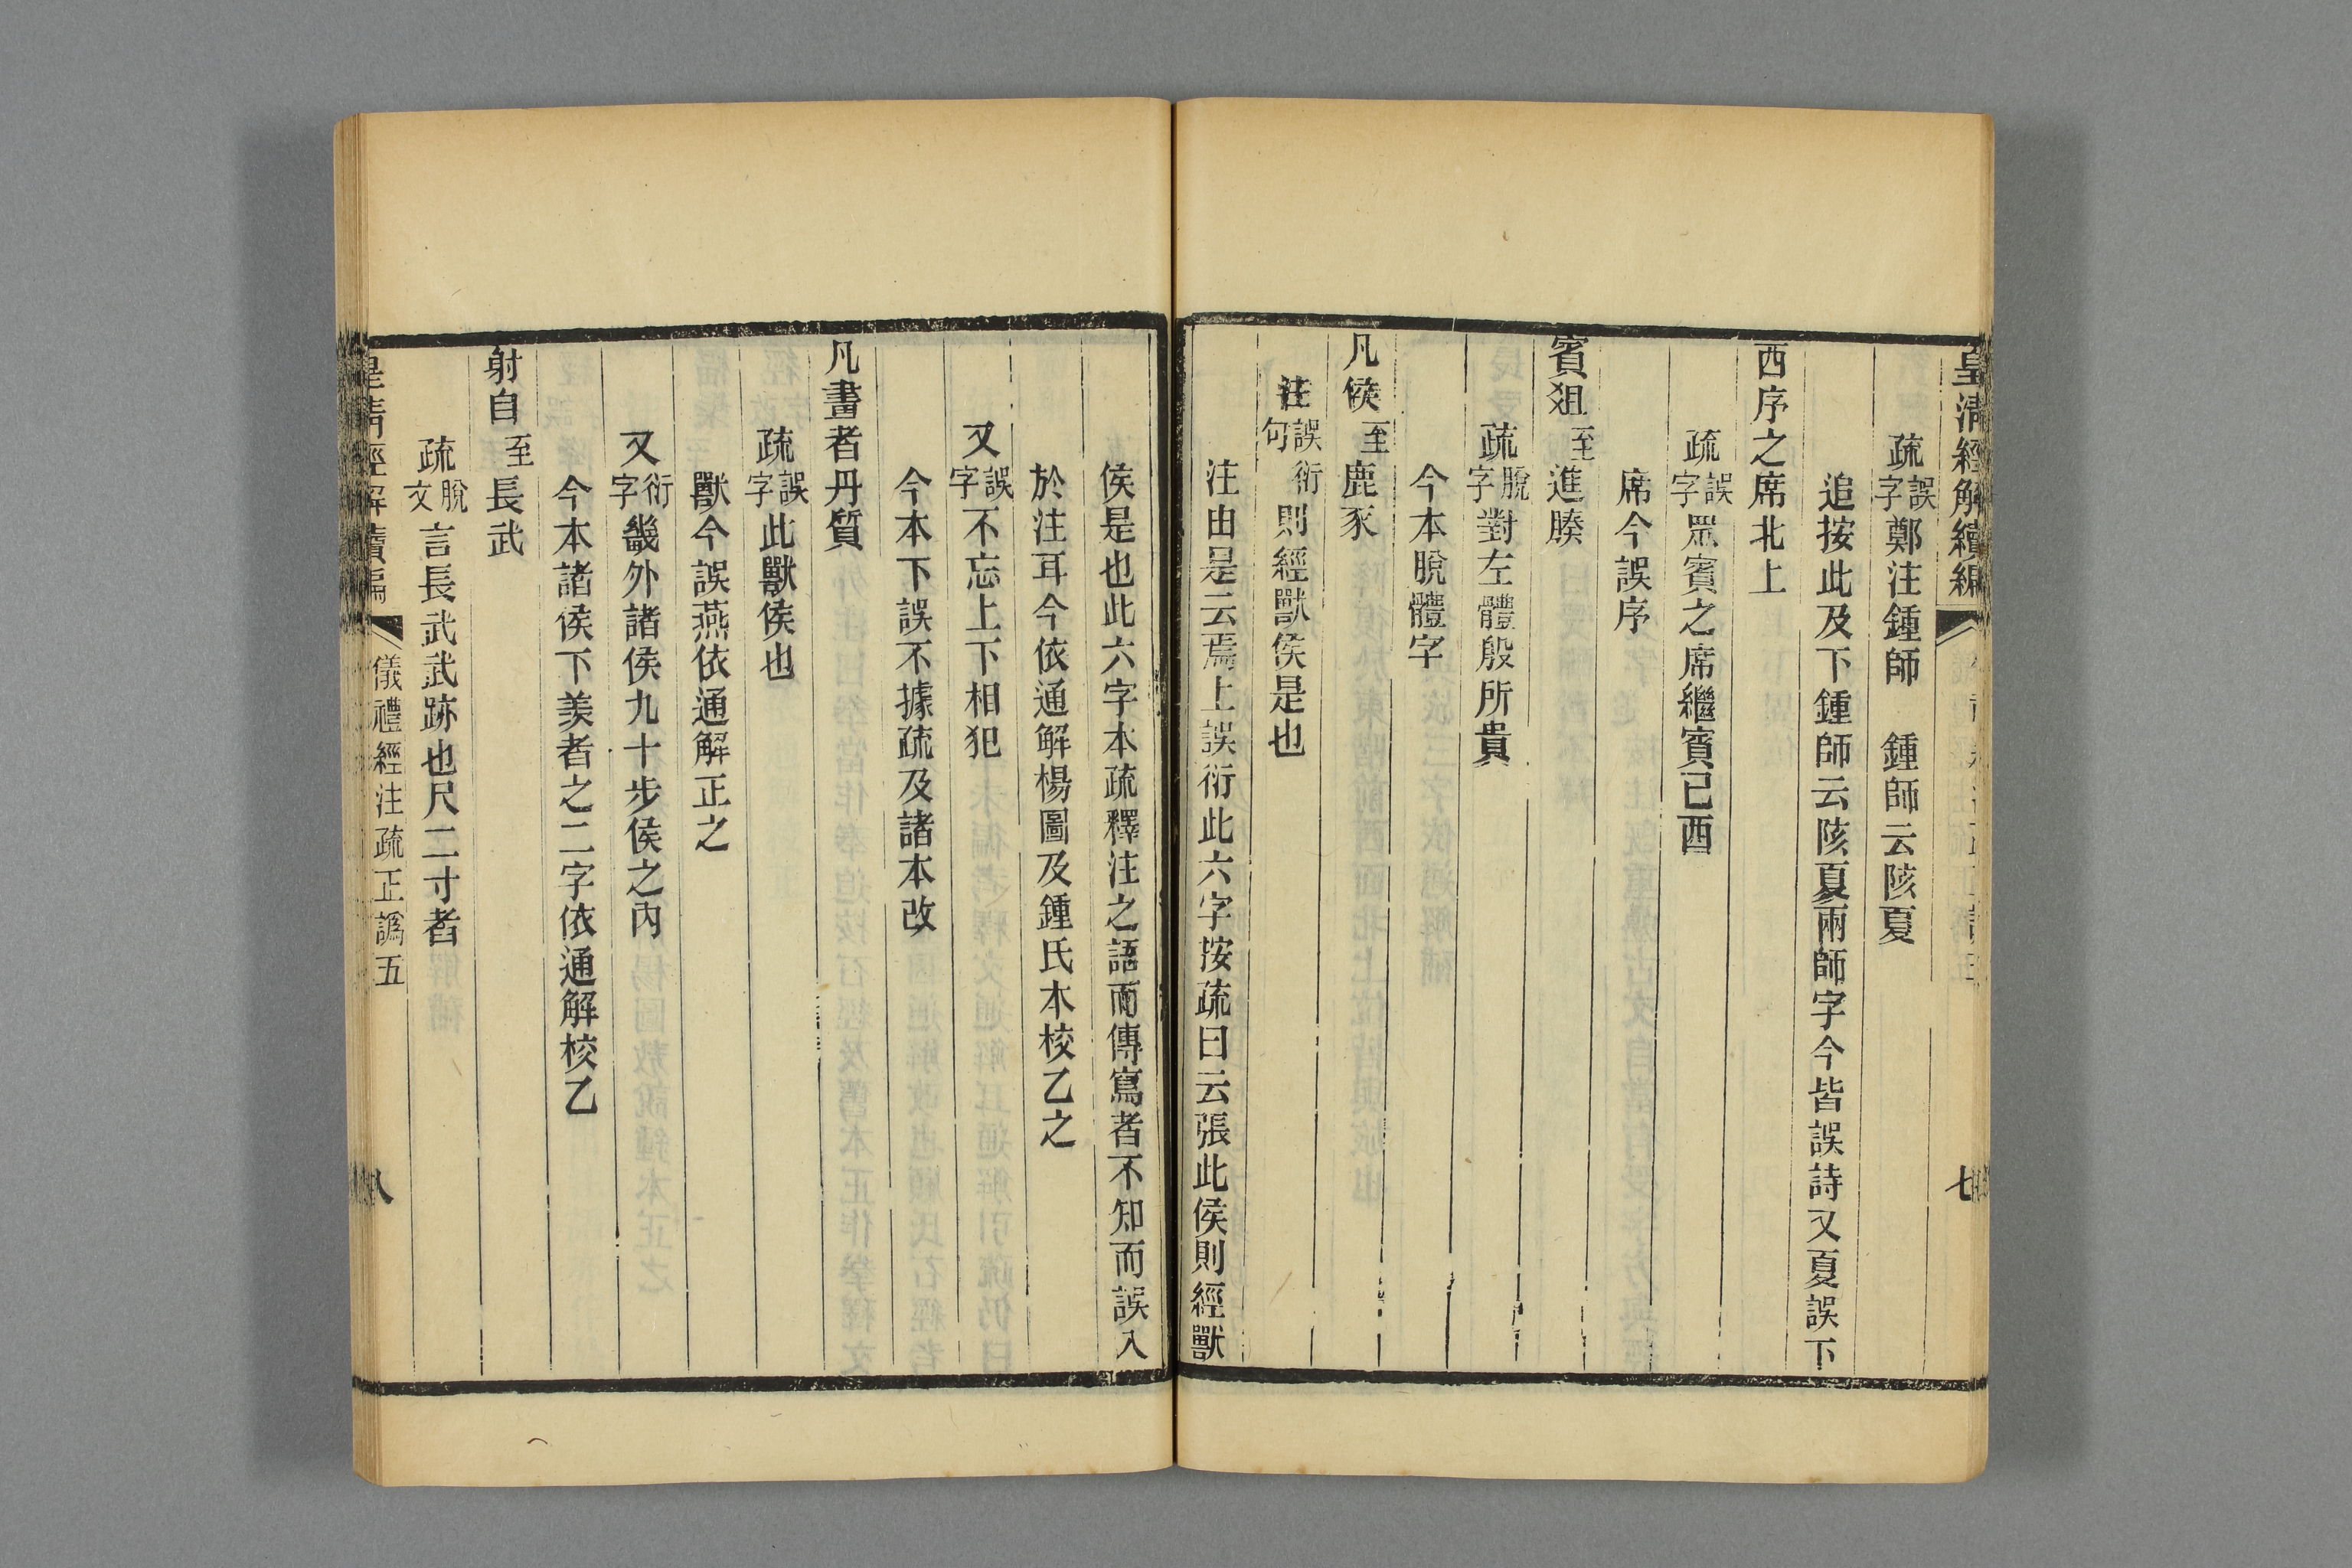 皇清經解續編
七
疏誤字鄭注鍾師　鍾師云陔夏
追按此及下鍾師云陔夏兩師字今皆誤詩又夏誤下
西序之席北上
疏誤字眾賓之席繼賓已酉
席今誤序
賓俎至進腠
疏脫字對左體殷所貴
今本脫體字
凡侯至鹿豕
注誤衍句則經獸侯是也
注由是云焉上誤衍此六字按疏曰云張此侯則經獸
侯是也此六字本疏釋注之語而傳寫者不知而誤入
於注耳今依通解楊圖及鍾氏本校乙之
又誤字不忘上下相犯
今本下誤不據疏及諸本改
凡畫者丹質
疏誤字此獸侯也
獸今誤燕依通解正之
又衍字畿外諸侯九十步侯之內
今本諸侯下羨者之二字依通解校乙
射自至長武
疏脫文言長武武跡也尺二寸者
皇清經解續編
儀禮經注疏正譌五
八